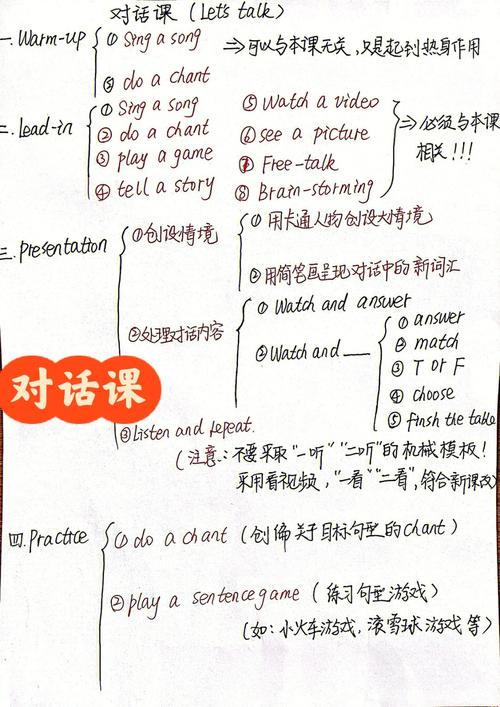 对话课 (Let's talk)
一. Warm-up
① Sing a song
② do a chant
⇒可以与本课无关,只是起到热身作用
二. Lead-in
① Sing a song
② do a chant
③ play a game
④ tell a story
⑤ Watch a video
⑥ see a picture
⑦ Free-talk
⑧ Brain-storming
⇒必须与本课
相关!!!
三. Presentation
①创设情境
① 用卡通人物创设大情境
② 用简笔画呈现对话中的新词汇
②处理对话内容
① Watch and answer
② Watch and ___
① answer
② match
③ T or F
④ choose
⑤ finsh the table
对话课
③ Listen and repeat.
(注意:不要采取"一听""二听"的机械模板!
采用看视频,"一看""二看",符合新课改)
四. Practice
① do a chant (创编关于目标句型的chant)
② play a sentence game (练习句型游戏)
(如:小火车游戏,滚雪球游戏等)